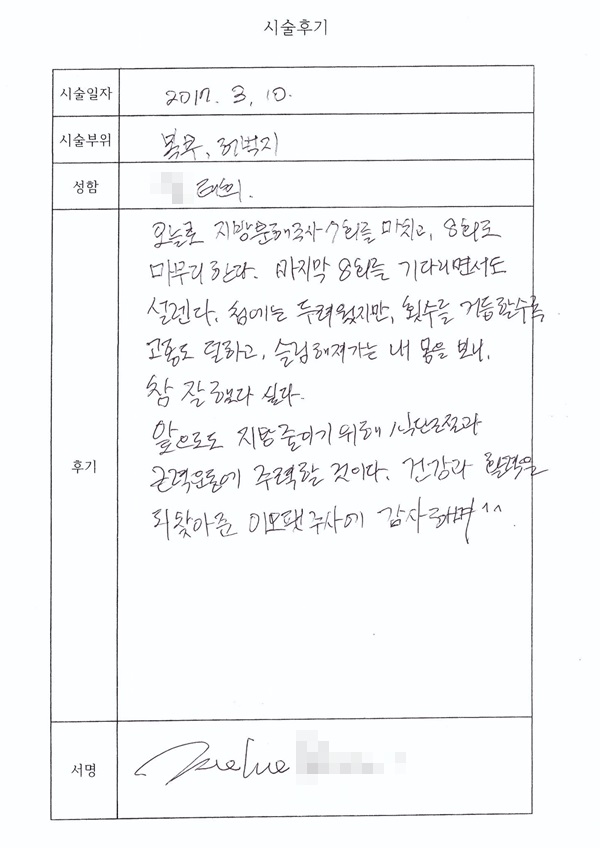 시술후기
시술일자 2017. 3. 10.
시술부위 복부, 허벅지
성함
오늘로 지방분해주사 7회를 마치고, 8회로
마무리한다. 마지막 8회를 기다리면서도
설렌다. 첨에는 두려웠지만, 횟수를 거듭할수록
고통도 덜하고, 슬림해져가는 내 몸을 보니,
참 잘했다 싶다.
앞으로도 지방줄이기 위해 식단조절과
후기
근력운동에 주력할 것이다. 건강과 활력을
되찾아준 이모팻주사에 감사하며^^
서명